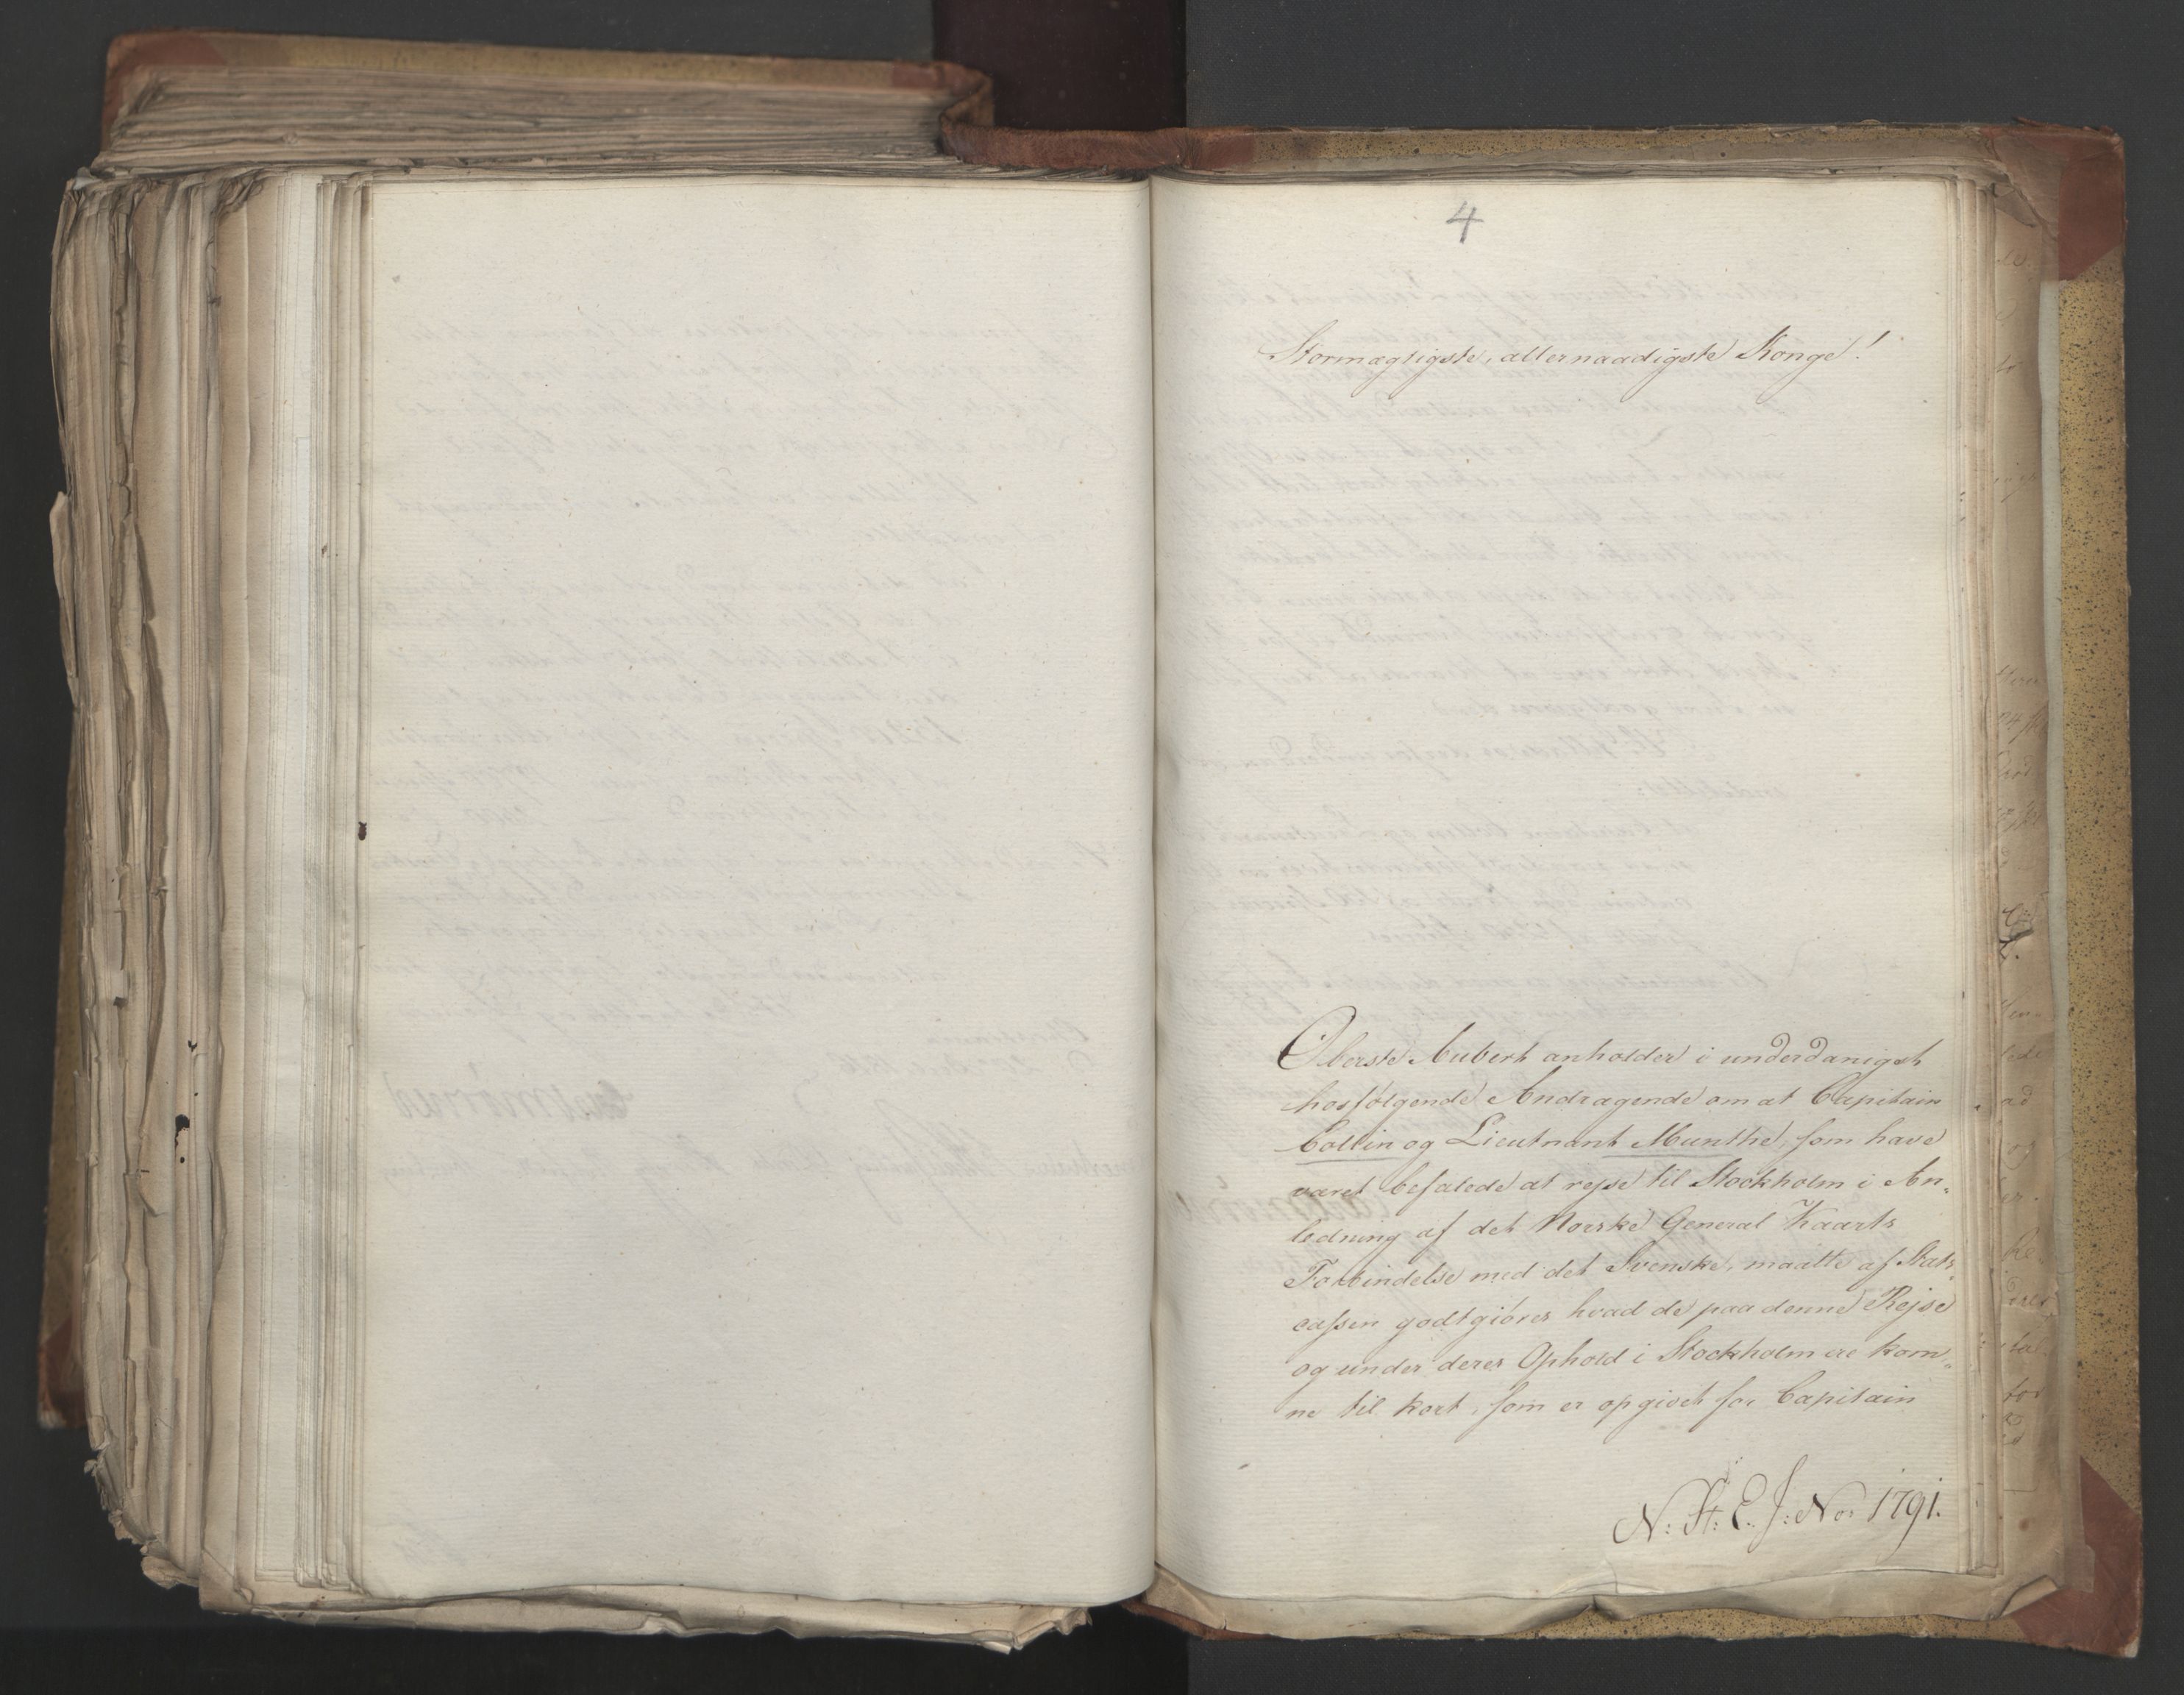 4
Stormægtigste, allernaadigste Konge!
Oberste Aubert anholder i underdanigst
hosfølgende Andragende om at Capitain
Collin og Lieutnant Munthe, som have
været befalede at rejse til Stockholm i An„
ledning af det Norske General Kaarts
Forbindelse med det Svenske, maatte af Stats„
cassen godtgiöres hvad de paa denne Rejse
og under deres Ophold i Stockholm ere kom„
ne til kort, som er opgivet for Capitain
N: St: E. J: No: 1791.